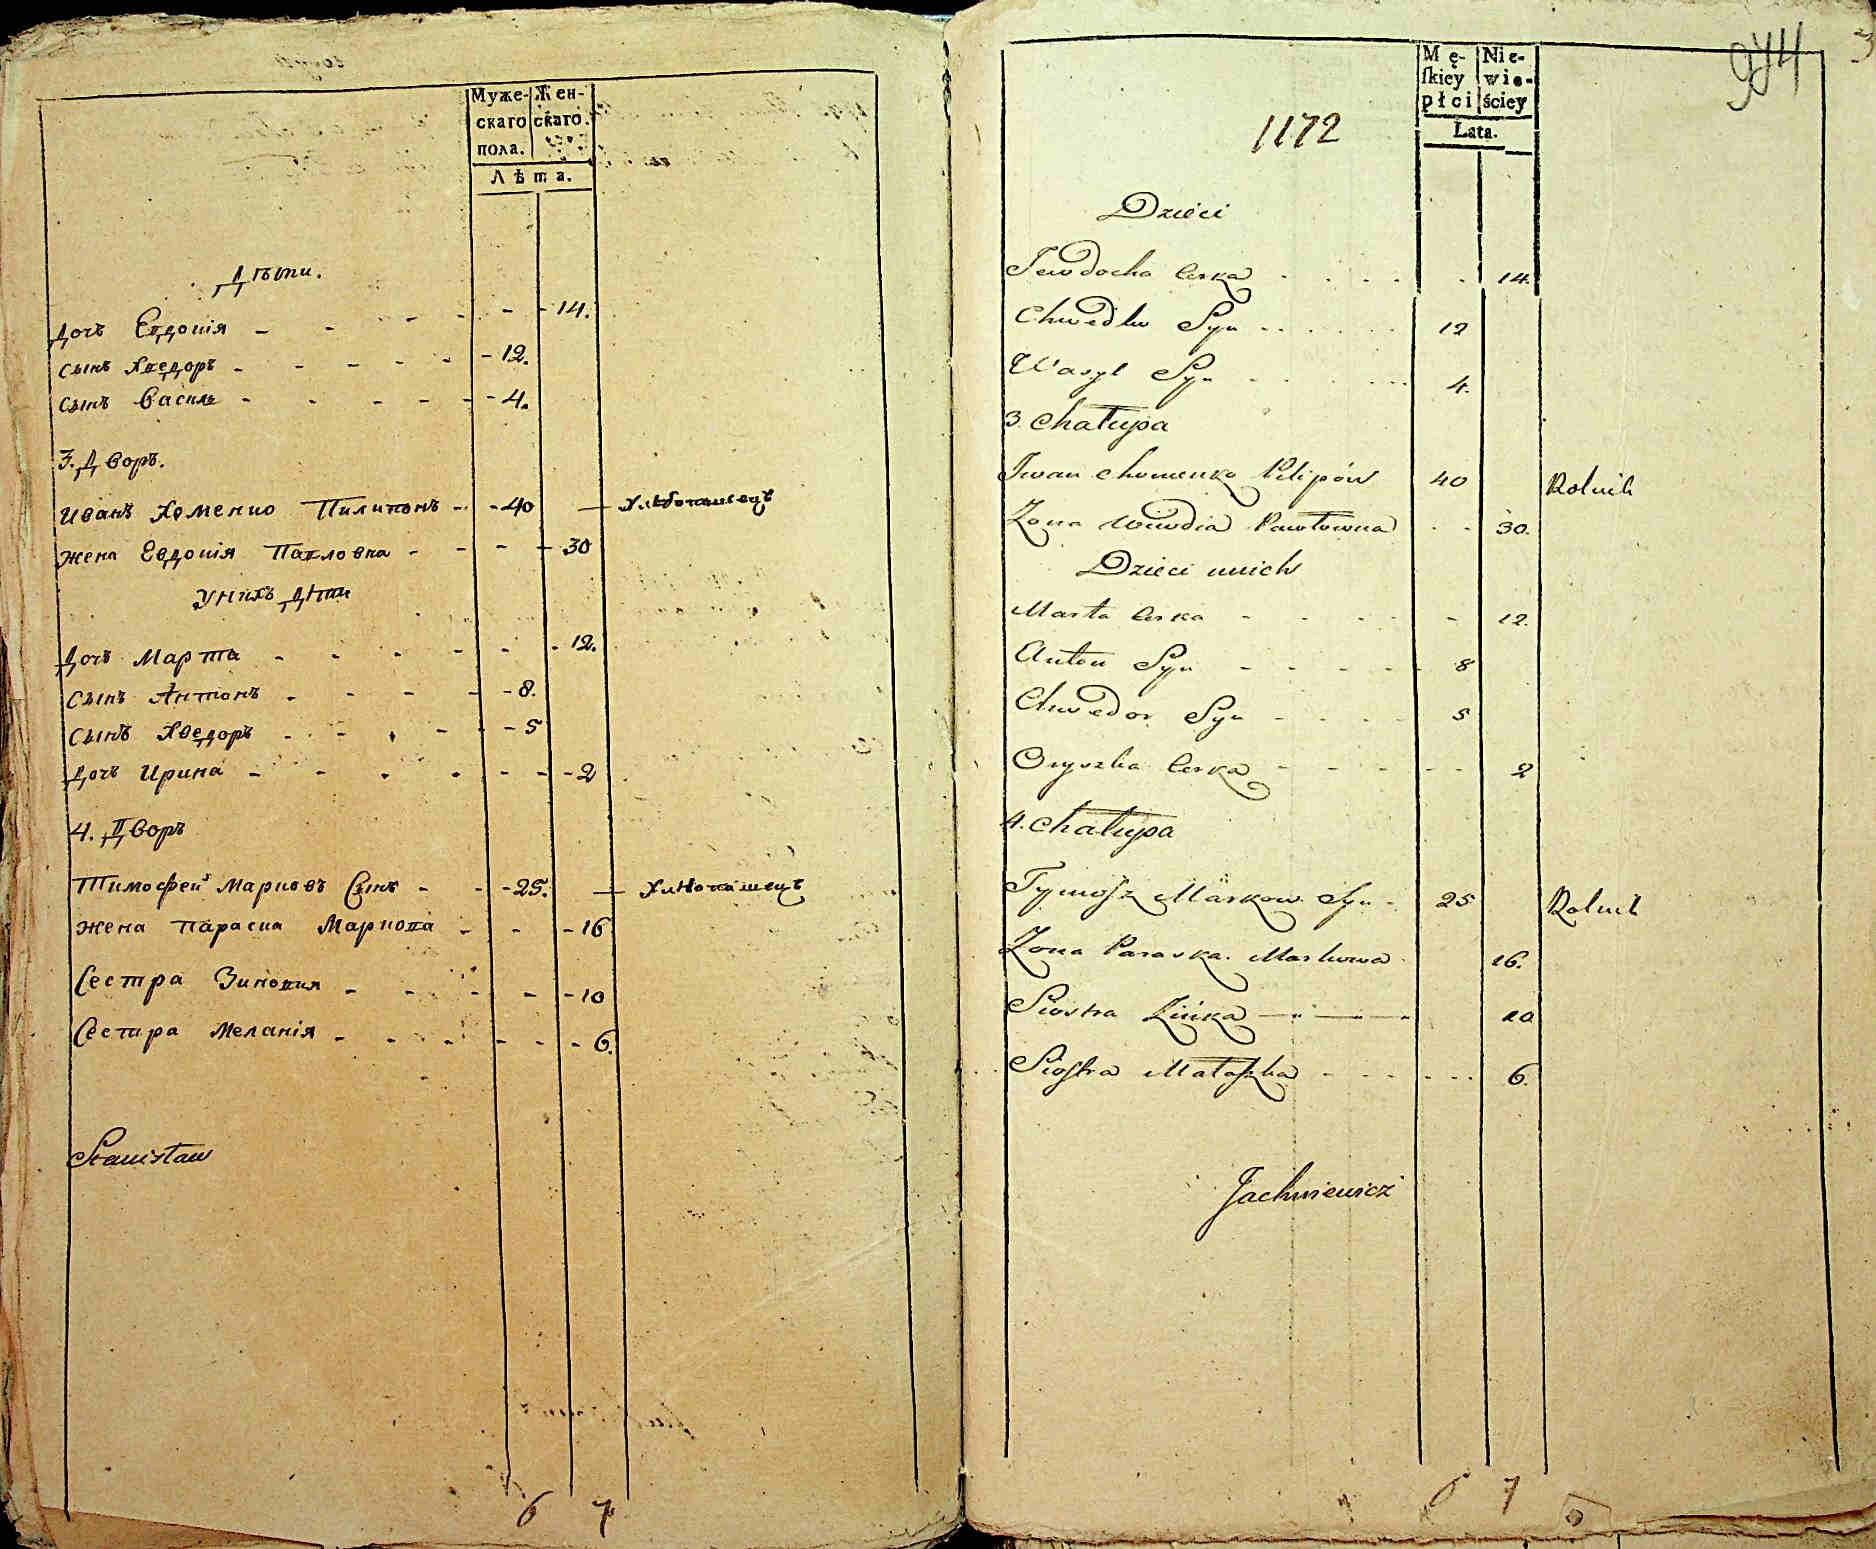 Муже-
скаго
пола.
Жен-
скаго.
Лѣта.
Дѣти.
Дочъ Евдокія - - - - - - 14.
сынъ Хведоръ - - - - - - 12.
сынъ Василь - - - - - - 4.
3. Дворъ.
Иванъ Хоменко Пилиповъ - - 40 — Хлѣбопашецъ
жена Евдокія Павловна - - - - 30
У нихъ Дѣти
Дочъ Марта - - - - - - 12.
Сынъ Антонъ - - - - - 8.
Сынъ Хведоръ - - - - - 5
Дочъ Ирина - - - - - - - 2
4. Дворъ
Тимофей Марковъ Сынъ - - 25. — Хлѣбопашецъ
жена Параска Маркова - - - 16
Сестра Зиновия - - - - - 10
Сестра Меланія - - - - - - 6.
Stanisław
6 7
944
Mę-
ſkiey
płci
Nie-
wie-
ściey
Lata.
1172
Dzieci
Jewdocha Corka - - - - - 14.
Chwedko Syn - - - - - - 12
Wasyl Syn - - - - - 4.
3. Chałupa
Iwan Chomenko Pilipów 40 Rolnik
Zona Wiwdia Pawłowna - - 30.
Dzieci unich
Marta Corka - - - - - 12.
Anton Syn - - - - - 8
Chwedor Syn - - - - 5
Oryszka Corka - - - - - - 2
4. Chałupa
Tymoſz Markow Syn - 25 Rolnik
Zona Paraska Markowa 16.
Siostra Zińka - - - 10
Sioſtra Małaſzka - - - - - - 6.
Jachniewicz
6 7